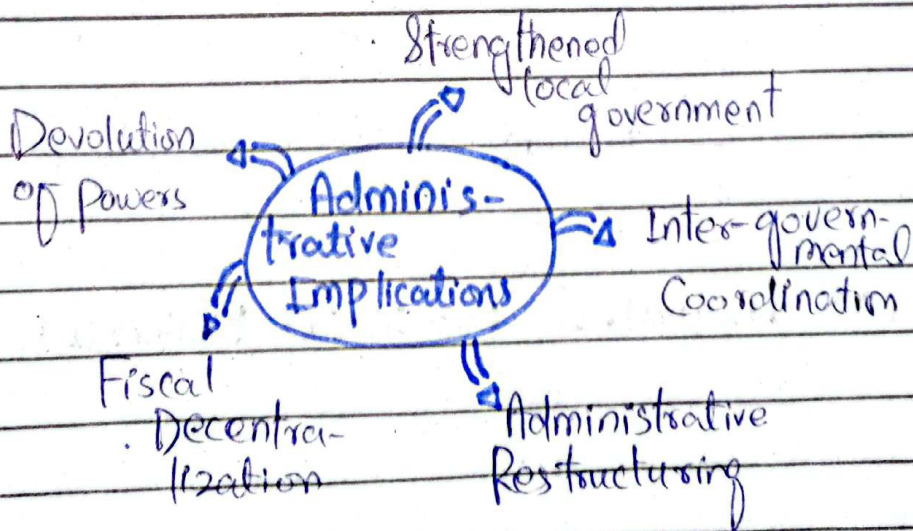 Strengthened
local
government
Devolution
of Powers
Adminis-
trative
Implications
Inter-govern-
mental
Coordination
Fiscal
Decentra-
lization
Administrative
Restructuring